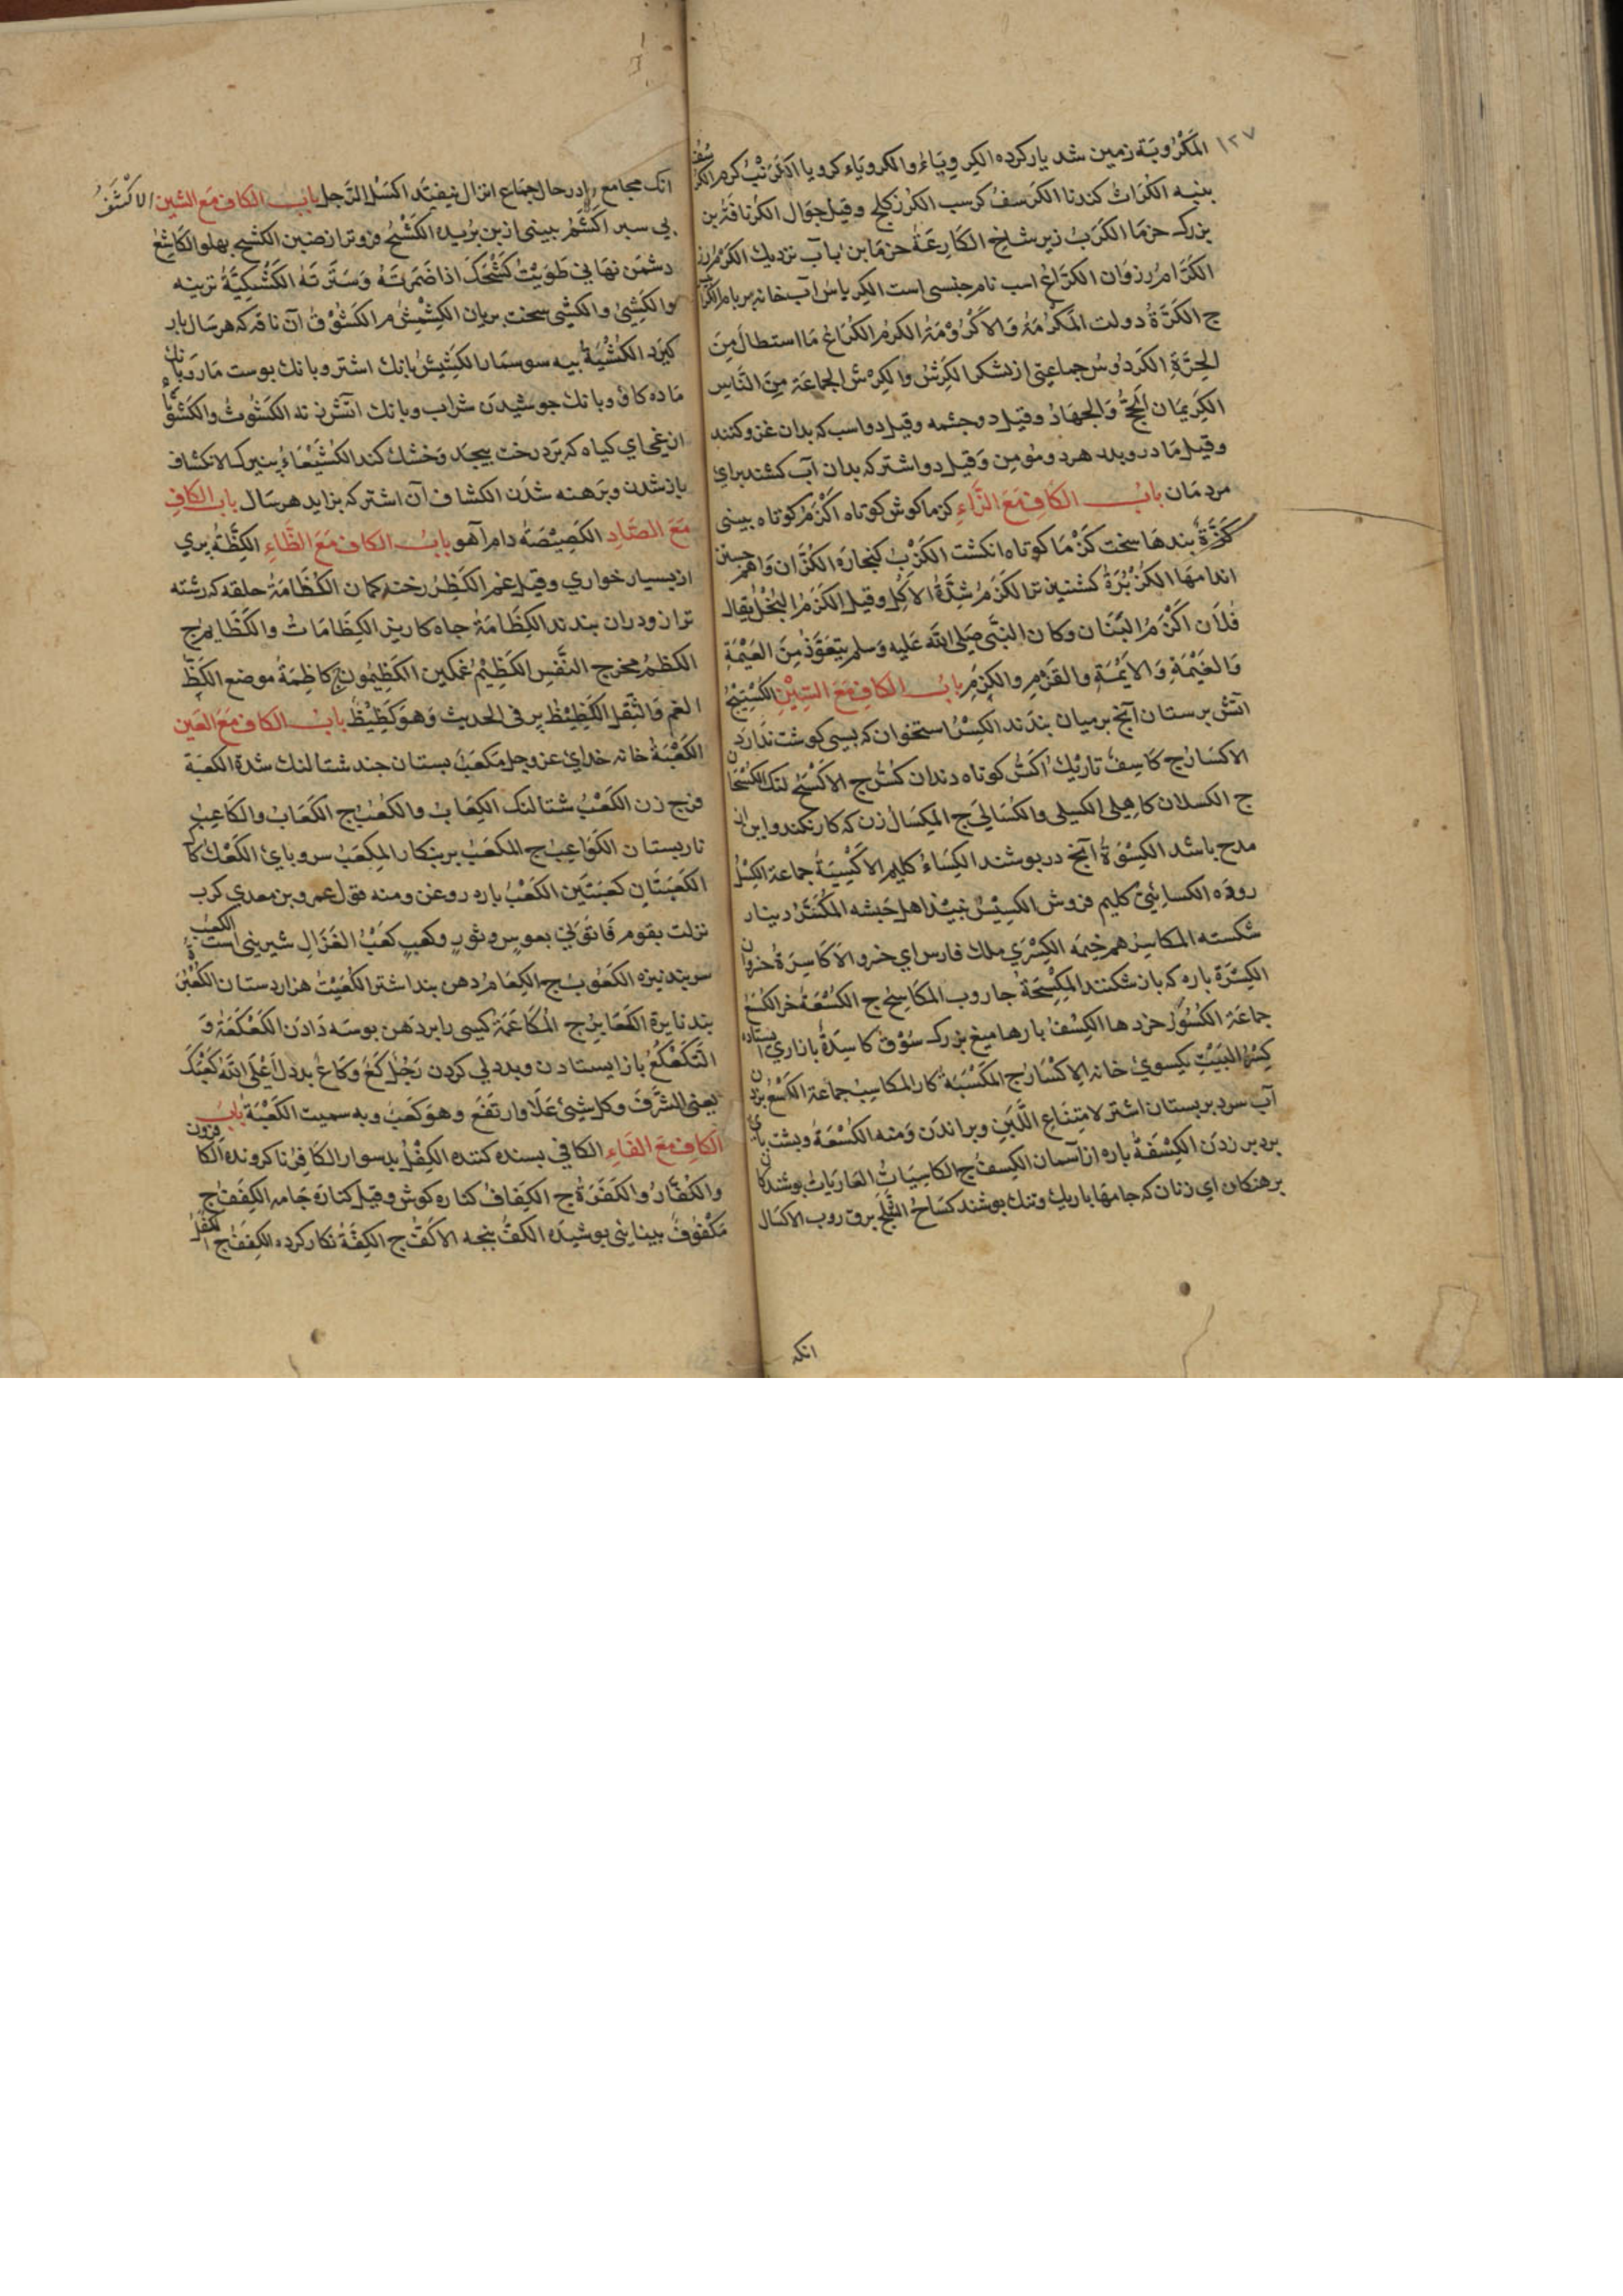 ١٢٧
المَكْرُوبَة زمین شد یار کرده الکِروِیَاءُ والکروَیَاء کرویا الکُرُنْبُ کرم الکُرْسُفُ
بنبه الکُرّاثُ کندنا الکَرسَفُ کرسب الکُرز کلج وقیل جوال الکُرنافَةُ بن
بزرک خرما الکَرَبُ زیر شاخ الکَارِعَةُ خرما بن باب نزدیک الکَرْمُ رز
الکَرَّامُ رزوان الکُرَاعُ اسب نام جنسی است الکِریاسُ آب خانه بر بام
ج الکَرَّةُ دولت المَکْرُمَةُ وَالاُکْرُوْمَةُ الکَرمُ الکُرَاعُ مَا استطالَ مِنَ
الحَرَّةِ الکُردُوسُ جماعتی از لشکر الکَرِشُ والکِرْشُ الجماعَة مِنَ النَّاسِ
الکَرِیمَانِ الحَجُّ وَالجِهَادُ وقیل دو چشمه وقیل دو اسب که بدان غزو کنند
وقیل مادر وبدر هرد ومُومِن وَقیل دو اشتر که بدان آب کشند برای
مردمان بابُ الکَافِ مَعَ الزَّاءِ کزما کوش کوتاه اَکْزَمُ کوتاه بینی
کَزَّةٌ بندها سخت کَزْمَا کوتاه انکشت الکُزْبُ کنجاره الکُزَّانُ وَاهَم چنین
اندامها الکُزْبُرَةُ کشنیز تر الکَزَمُ شِدَّةُ الاَکْلِ وقیل الکَزَمُ البُخْلُ یقال
فُلاَن اَکْزَمُ البَنَان وکان النبَّی صَلی الله عَلیه وَسلم یتعَوَّذُ مِنَ العَیْمَةِ
وَالغَیْمَةِ وَالاَیْمَةِ والقَزَمِ والکَزَمِ بابُ الکَافِ مَعَ السِّیْنِ الکُسْتِیْجُ
اتش برستان آنج بر میان بندند الکِسْرُ استخوان که بسی کوشت ندارد
الاکسَارُ ج کَاسِفٌ تاریکْ اَکَسُّ کوتاه دندان کُسٌّ ج الاَکْسَحُ لنک الکُسْحَان
ج الکسلان کاهِلی الکسلی والکُسَالیَ ج المِکسَالُ زن که کار نکند واین از
مدح باشد الکِسْوَةُ آنج دربوشند الکِسَاءُ کلیم الاَکْسِیَةُ جماعة
روزه الکسائِیُّ کلیم فروش الکَسِیْسُ نبیذ اهل حَبشه المُکَسَّرُ دینار
شکسته المکاسِرُ هم خیمه الکِسْرَی ملک فارس ای خرو الاَکَاسِرَةُ خروان
الکِسْرَةُ باره که باز شکنند المِکْسَحَةُ جاروب المَکَاسِحُ ج الکُسْعَةُ خر الکُسَعُ
جماعَة الکُسُوْرُ خرد ها الکِسْفُ بارها میغ بزرک سُوْقٌ کَاسِدَةٌ بازاری ایستاده
کِسْرُ البَیْتِ یکسوی خانه الاَکْسَارُ ج المَکْسَبَةُ کار المکاسِبُ جماعة الکَسْعُ بزدن
آب سرد بر بستان اشتر لامتِنَاعِ اللَّبَنِ وبراندَن وَمنه الکُسْعَةُ وبشت بای
بر دبر زدن الکِسْفَةُ باره از آسمان الکِسَفُ ج الکاسِیَاتُ العَارِیَاتُ بوشندکان
برهنکان ای زنان که جامها باریک وتنک بوشند کسَاحُ الثَّلْجِ برف روب الاکسَال
انکه
انک مجامع را در حال جِمَاع انزال نیفتد اکسَل الرَّجل بابُ الکاف مَعَ الشین الاَکْشَفُ
بی سبر اکَشَمُ بینی از بن بریده الکَشْحُ فروتر از ضبن الکشح بهلو الکَاشِحُ
دشمَن نهانی طَوَیْتُ کَشْحَکَ اذا ضَمَرتَهُ وَسَتَرتَهُ الکُشْکِیَّةُ ترینه
والکَشِیُّ والکَشْیُ سخت بریان الکِشْمِشُ م الکَشُوْفُ آن ناقه که هر سَال بار
کیرد الکُشْیَةُ بیه سوسمار الکَشِیْشُ بانک اشتر وبانک بوست مَار وَبانک
مَاده کاو وبانک جوشیدن شراب وبانک آتش زنه الکَشُوثُ والکَشُوثَاءُ
ارغجای کیاه که بَر درخت بیجد وَخشک کند الکُشَیْعَاءُ بنیرک الانکشاف
باز شدن وبَرهنه شدَن الکشاف آن اشتر که بزاید هر سَال بابُ الکافِ
مَعَ الصَّادِ الکَصِیْصَةُ دام آهو بابُ الکاف مَعَ الظَّاءِ الکِظَّةُ بری
از بسیار خواری وقیل غم الکُظرُ رخنه کمان الکُظَامَةُ حلقه که رشته
ترازو دران بندند الکِظَامَةُ جاه کاریز الکِظَامَاتُ والکَظَایمُ ج
الکَظَمُ مخرج النَّفسِ الکَظِیْمُ غمکین الکَظِیْمُون ج کَاظِمَةُ موضع الکَظُّ
الغم وَالثِّقل الکَظِیْظُ بر فی الحدیث وَهوَ کَظِیْظٌ بابُ الکاف مَعَ العَین
الکَعْبَةُ خانه خدای عز وجل مَکعَبٌ بستان جند شتالنک شدة الکعبَة
فرج زن الکَعْبُ شتالنک الکِعَابُ والکُعُبُ ج الکَعَابُ والکَاعِبُ
نار بستان الکَوَاعِبُ ج المکَعَبُ برنکار المِکعَبُ سروبای الکَعْکُ کاک
الکَعْبَتَانِ کعبَتَین الکَعْبُ باره روغن ومنه قول عمرو بن معدی کرب
نزلت بقوم فَاتَوْنِی بقوسٍ وثورٍ وکَعبٍ کعبُ الغَزَالِ شیرینی است الکعبُ
سر بند نیزه الکُعُوبُ ج الکِعَامُ دهن بند اشتر الکُعَیْتُ هزاردستان الکُعْبُرَةُ
بند نایزة الکَعَابِرُ ج المُکَاعَمَةُ کسی را بر دَهن بوسَه دَادَن الکَعْکَعَةُ وَ
التَّکَعْکُعُ باز ایستادن وبد دلی کردن رَجُلٌ کَعٌّ وَکَاعٌ بد دل اَعْلَی اللهُ کَعْبَکَ
یعنی الشَّرَفَ وَکل شَیْئ عَلاَ وارتَفَعَ وهوَ کعَبٌ وبه سمیت الکَعْبَةُ بابُ
الکَافِ مَعَ الفَاءِ الکافی بسنده کننده الکِفْلُ بد سوار الکَافِرُ ناکرونده الکَافِرُون
والکُفَّارُ والکَفَرَةُ ج الکِفَافُ کناره کوش وقیل کنارَه جَامه الکِفَفُ ج
مَکْفُوفٌ بینایی بوشیدَه الکَفُّ بنجه الاَکُفُّ ج الکِفَّةُ نکار کرده الکِفَفُ ج الکَفَلُ